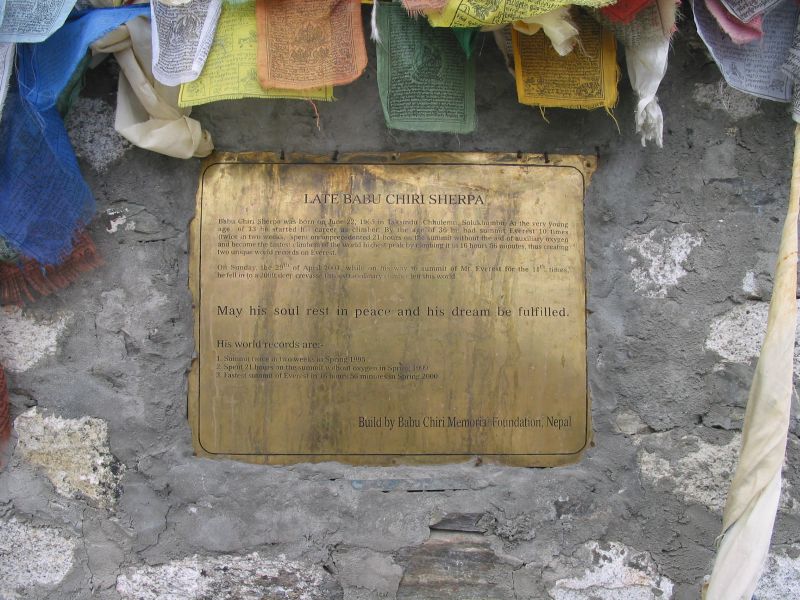 LATE BABU CHIRI SHERPA
Babu Chiri Sherpa was born on June 22, 1965 in Taksindu Chhulemu, Solukhumbu. At the very young
age of 13 he started his career as climber. By the age of 36 he had summit Everest 10 times
(twice in two weeks, spent on unprecedented 21 hours on the summit without the aid of auxiliary oxygen
and become the fastest climber of the world highest peak by climbing it in 16 hours 56 minutes, thus creating
two unique world records on Everest.
On Sunday, the 29th of April 2001, while on his way to summit of Mt. Everest for the 11th times,
he fell in to a 200ft deep crevasse this extraordinary climber left this world.
May his soul rest in peace and his dream be fulfilled.
His world records are:-
1. Summit twice in two weeks in Spring 1995
2. Spent 21 hours on the summit without oxygen in Spring 1999
3. Fastest summit of Everest in 16 hours 56 minutes in Spring 2000
Build by Babu Chiri Memorial Foundation, Nepal